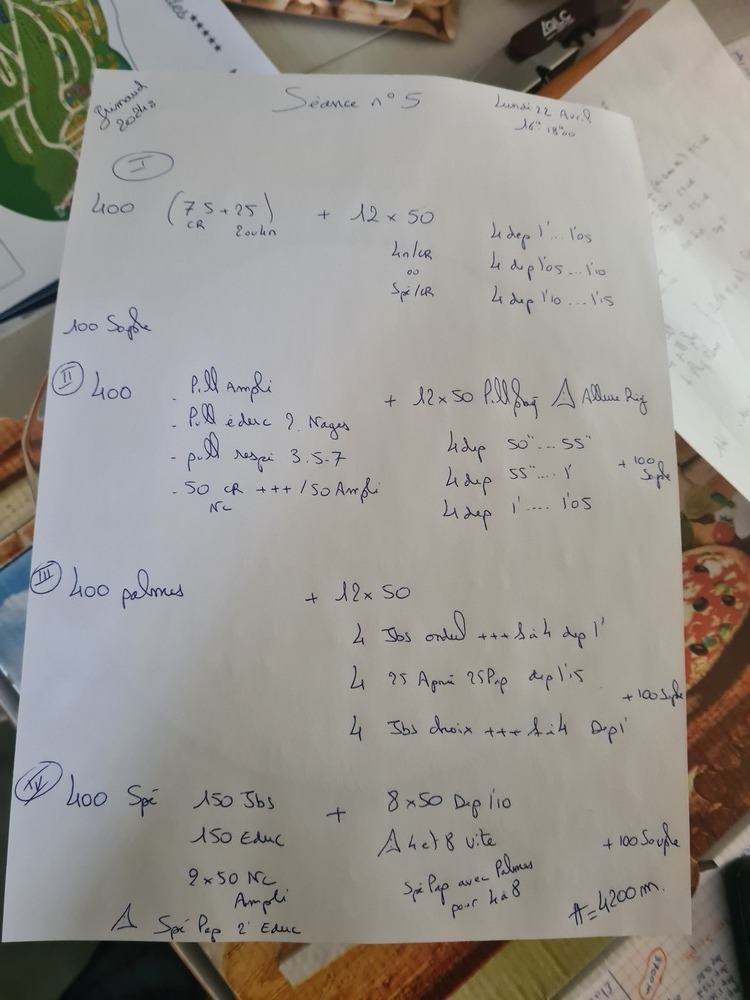 Grimaud
Séance n° 5
Lundi 22 Avril
16h 18h00
I
400 (75 + 25) + 12 x 50
CR
4n/CR
ou
Spé/CR
4 dep 1' ... 1'05
4 dep 1'05 ... 1'10
4 dep 1'10 ... 1'15
100 Souple
II 400
- Pull Ampli
- Pull éduc 2 Nages
- pull respi 3.5.7
- 50 CR +++ / 50 Ampli
NC
+ 12 x 50 Pull Δ Allure
4 dep 50" ... 55"
4 dep 55" ... 1'
4 dep 1' .... 1'05
+ 100
Souple
III 400 palmes + 12 x 50
4 Jbs ondul +++ 1 à 4 dep 1'
4 25 Apnée 25 Pap dep 1'15
4 Jbs choix +++ 1 à 4 Dep 1'
+ 100 Souple
IV 400 Spé 150 Jbs
150 Educ
2 x 50 NC
Ampli
Δ Spé Pap 2' Educ
+ 8 x 50 Dep 1'10
Δ 4 et 8 vite
Spé Pap avec Palmes
pour 4 à 8
+ 100 Souple
= 4200 m.